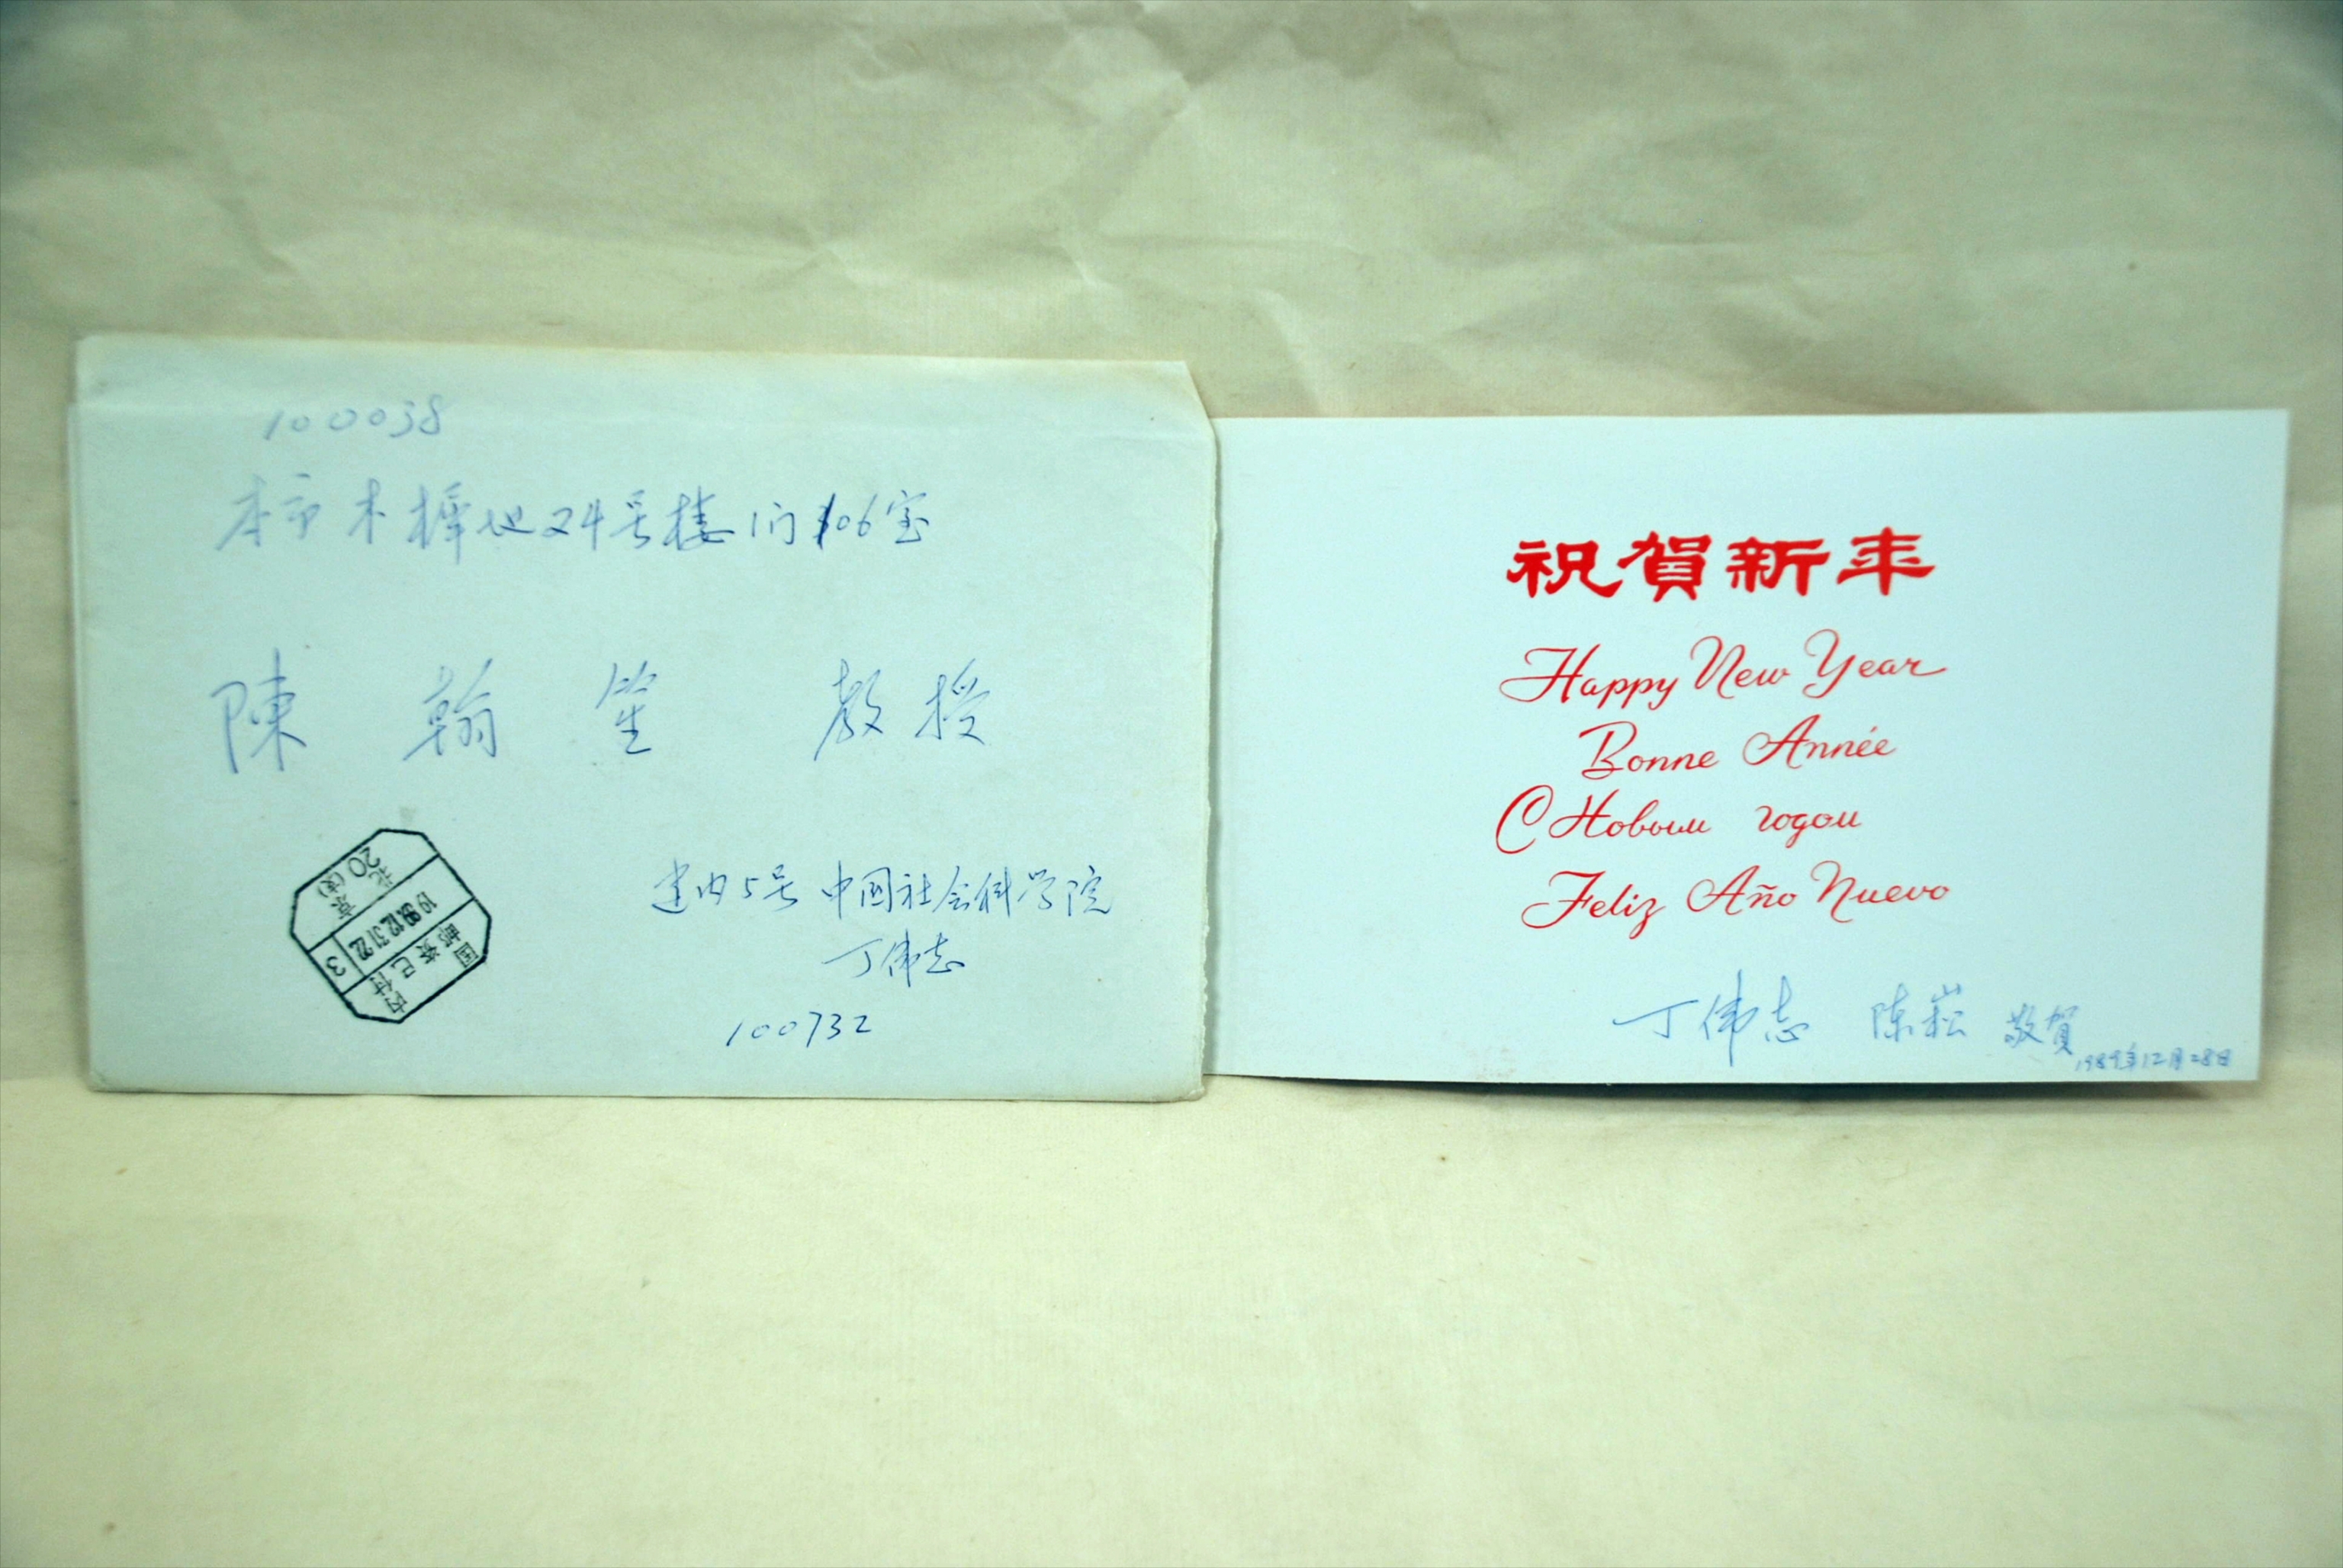 100038
本市木樨地24号楼1门106室
陳翰笙 教授
北京
20(支)
1989.12.31.22
3
国内
邮资已付
建内5号 中国社会科学院
丁伟志
100732
祝賀新年
Happy New Year
Bonne Année
С Новым годом
Feliz Año Nuevo
丁伟志 陈崧 敬賀
1989年12月28日